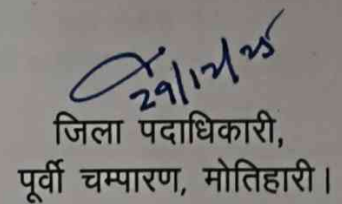 29/12/25
जिला पदाधिकारी,
पूर्वी चम्पारण, मोतिहारी।